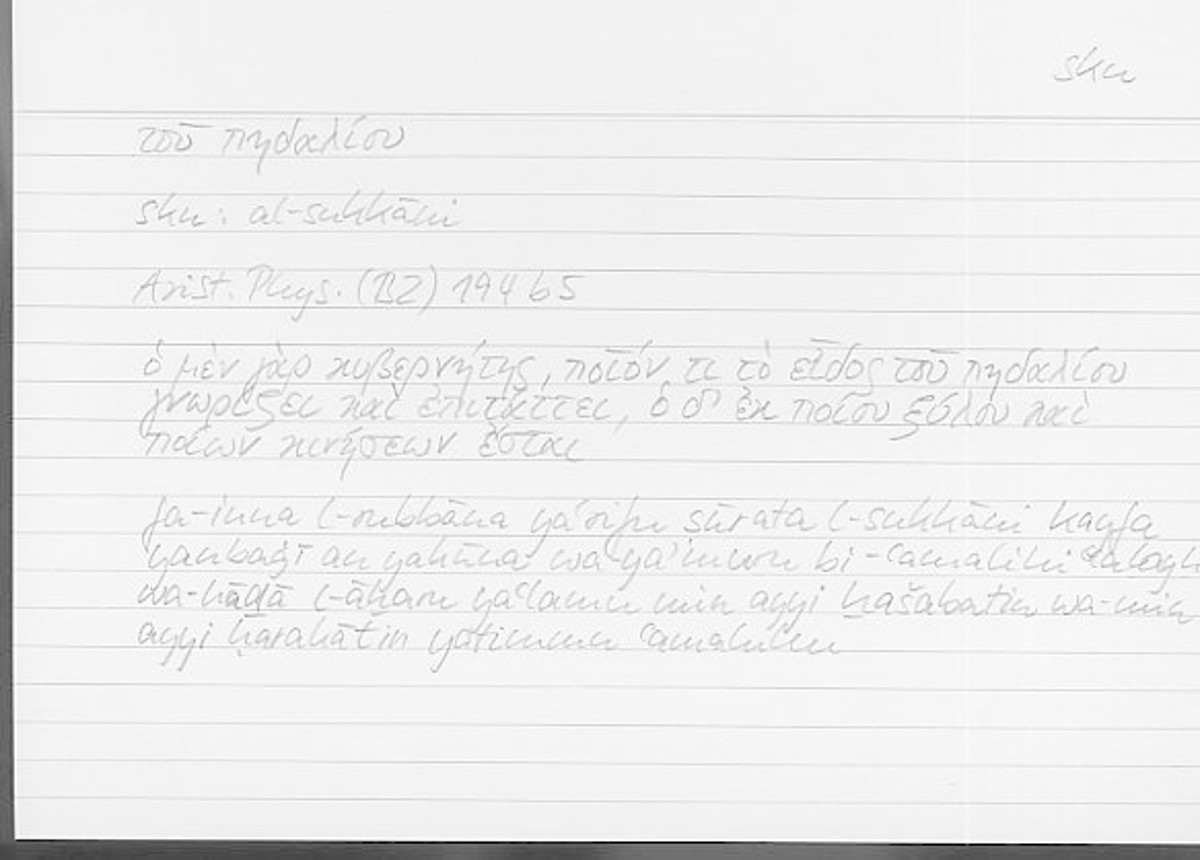 skn
τοῦ πηδαλίου
skn: al-sukkāni
Arist. Phys. (B2) 194 b5
ὁ μὲν γὰρ κυβερνήτης, ποῖόν τι τὸ εἶδος τοῦ πηδαλίου
γνωρίζει καὶ ἐπιτάττει, ὁ δ' ἐκ ποίου ξύλου καὶ
ποίων κινήσεων ἔσται
fa-inna l-rubbāna yaʿrifu ṣūrata l-sukkāni kayfa
yanbaġī an yakūna wa-yaʾmuru bi-ʿamalihi
wa-hāḏā l-āḫaru yaʿlamu min ayyi ḫašabatin wa-min
ayyi ḥarakātin yatimmu ʿamaluhu